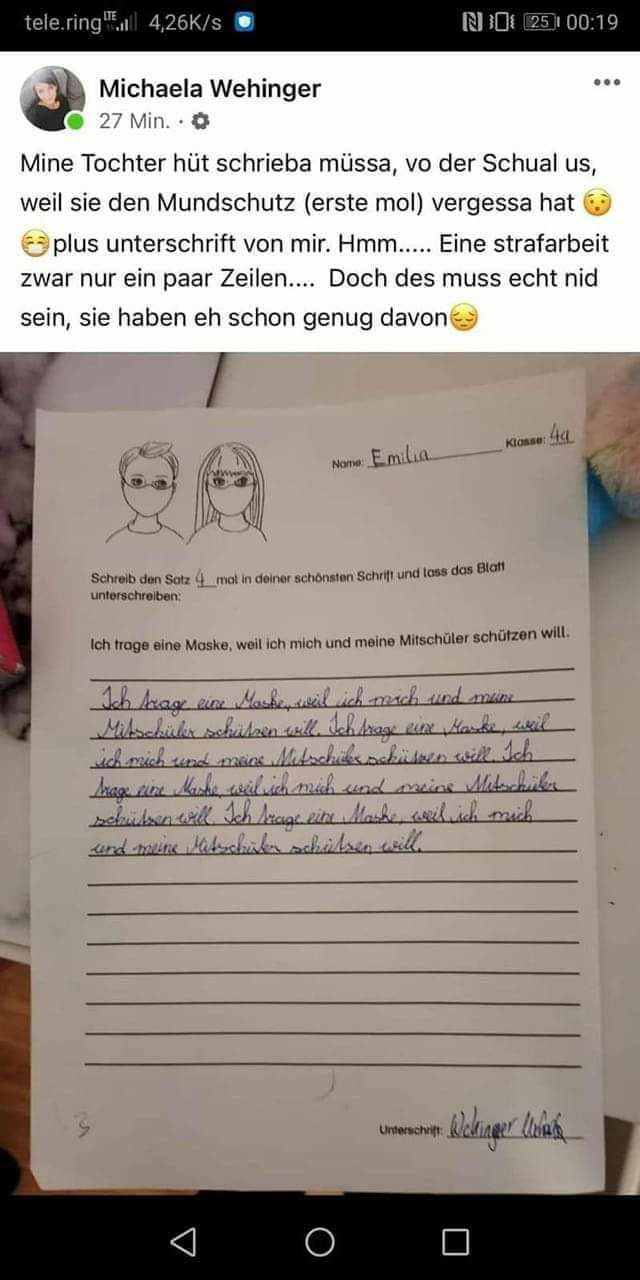 tele.ring LTE 4,26K/s N 25 00:19
Michaela Wehinger
27 Min. ·
Mine Tochter hüt schrieba müssa, vo der Schual us,
weil sie den Mundschutz (erste mol) vergessa hat 😯
😷plus unterschrift von mir. Hmm..... Eine strafarbeit
zwar nur ein paar Zeilen.... Doch des muss echt nid
sein, sie haben eh schon genug davon😔
Name: Emilia Klasse: 4a
Schreib den Satz 4 mal in deiner schönsten Schrift und lass das Blatt
unterschreiben:
Ich trage eine Maske, weil ich mich und meine Mitschüler schützen will.
Ich trage eine Maske, weil ich mich und meine
Mitschüler schützen will. Ich trage eine Maske, weil
ich mich und meine Mitschüler schützen will. Ich
trage eine Maske, weil ich mich und meine Mitschüler
schützen will. Ich trage eine Maske, weil ich mich
und meine Mitschüler schützen will.
Unterschrift: Wehinger